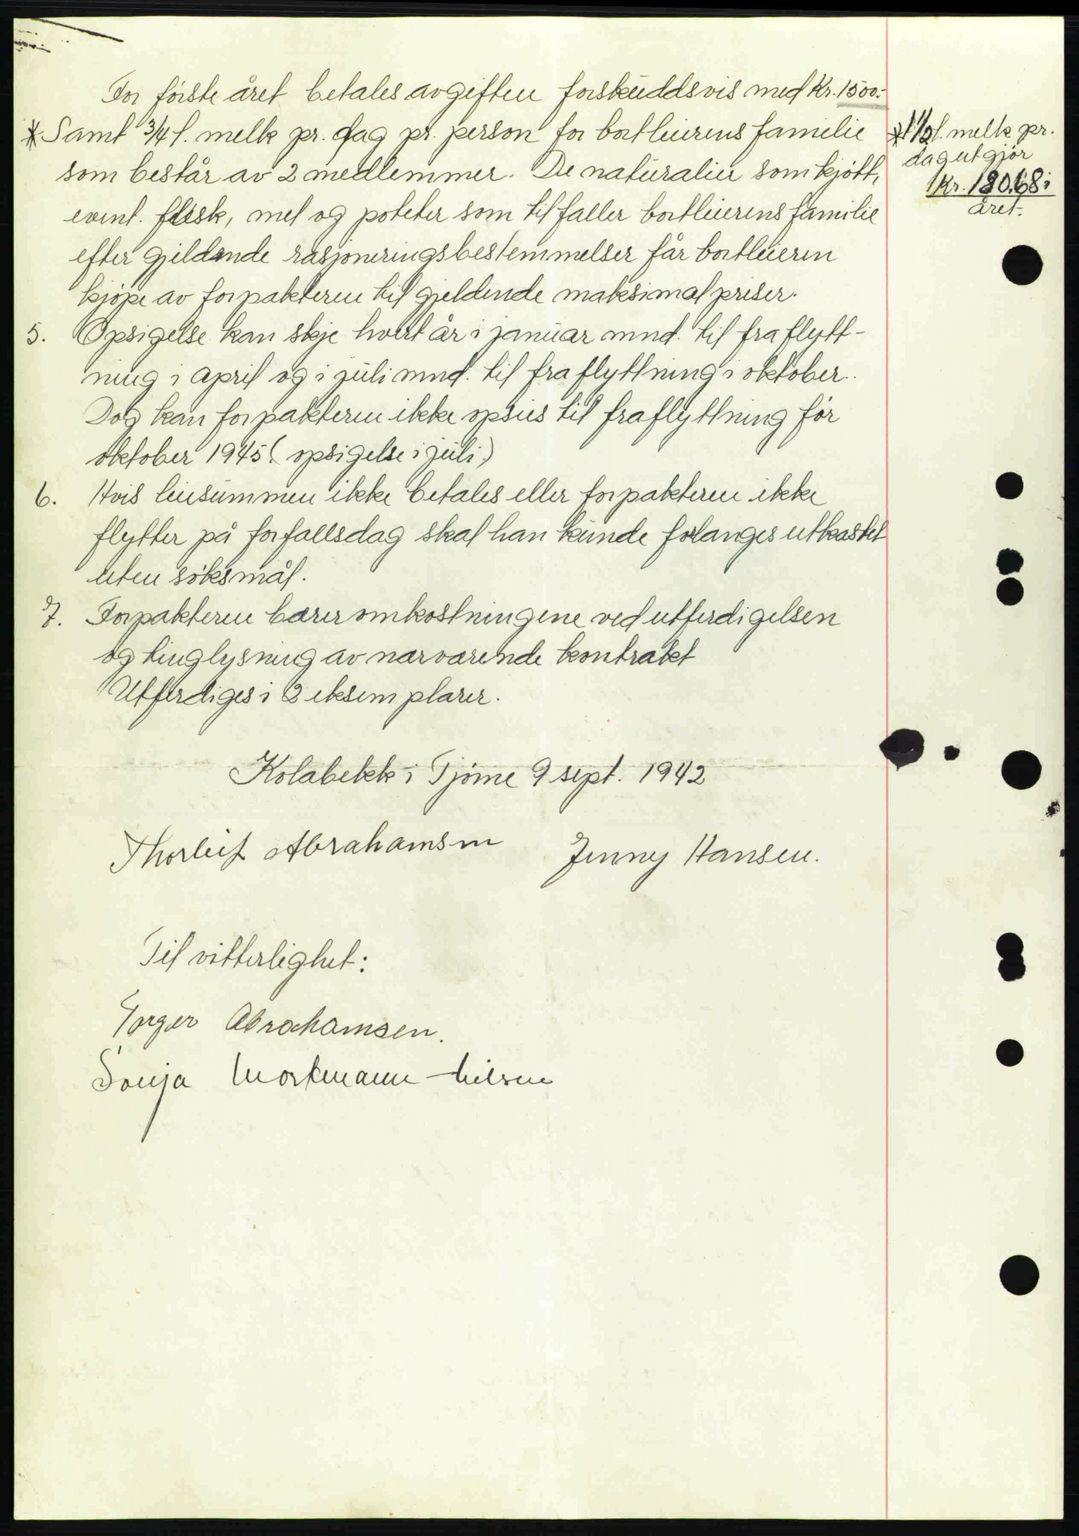 For første året betales avgiften forskuddsvis med Kr. 1500.-
* Samt 3/4 l. melk pr. dag pr. person for bortleierens familie
som består av 2 medlemmer. De naturalier som kjøtt,
event. flesk, mel og poteter som tilfaller bortleierens familie
efter gjeldende rasjoneringsbestemmelser får bortleieren
kjøpe av forpakteren til gjeldende maksimalpriser.
5. Opsigelse kan skje hvert år i januar mnd. til fraflytt-
ning i april og i juli mnd. til fraflyttning i oktober.
Dog kan forpakteren ikke opsies til fraflyttning før
oktober 1945 (opsigelse i juli)
6. Hvis leiesummen ikke betales eller forpakteren ikke
flytter på forfallsdag skal han kunde forlanges utkastet
uten søksmål.
7. Forpakteren bærer omkostningene ved utferdigelsen
og tinglysning av nærværende kontrakt
Utferdiges i 2 eksemplarer.
Kolabekk i Tjöme 9 sept. 1942
Thorleif Abrahamsen Jenny Hansen.
Til vitterlighet:
Torger Abrahamsen.
Sonja Mortmann-Nilsen
* 1 1/2 l. melk pr.
dag utgjör
Kr. 180.68 i
året.